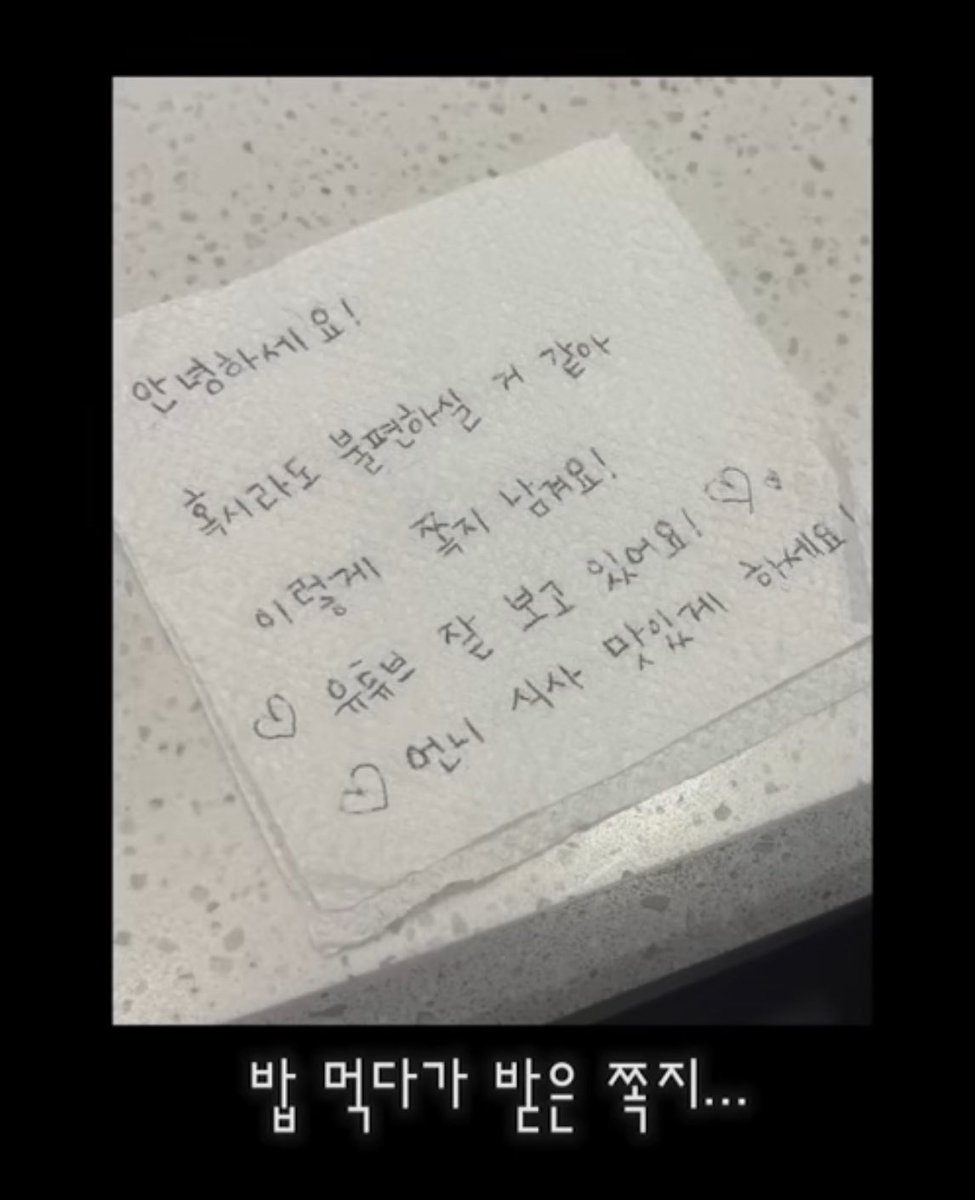 안녕하세요!
혹시라도 불편하실 거 같아
이렇게 쪽지 남겨요!
유튜브 잘 보고 있어요!
언니 식사 맛있게 하세요!
밥 먹다가 받은 쪽지...